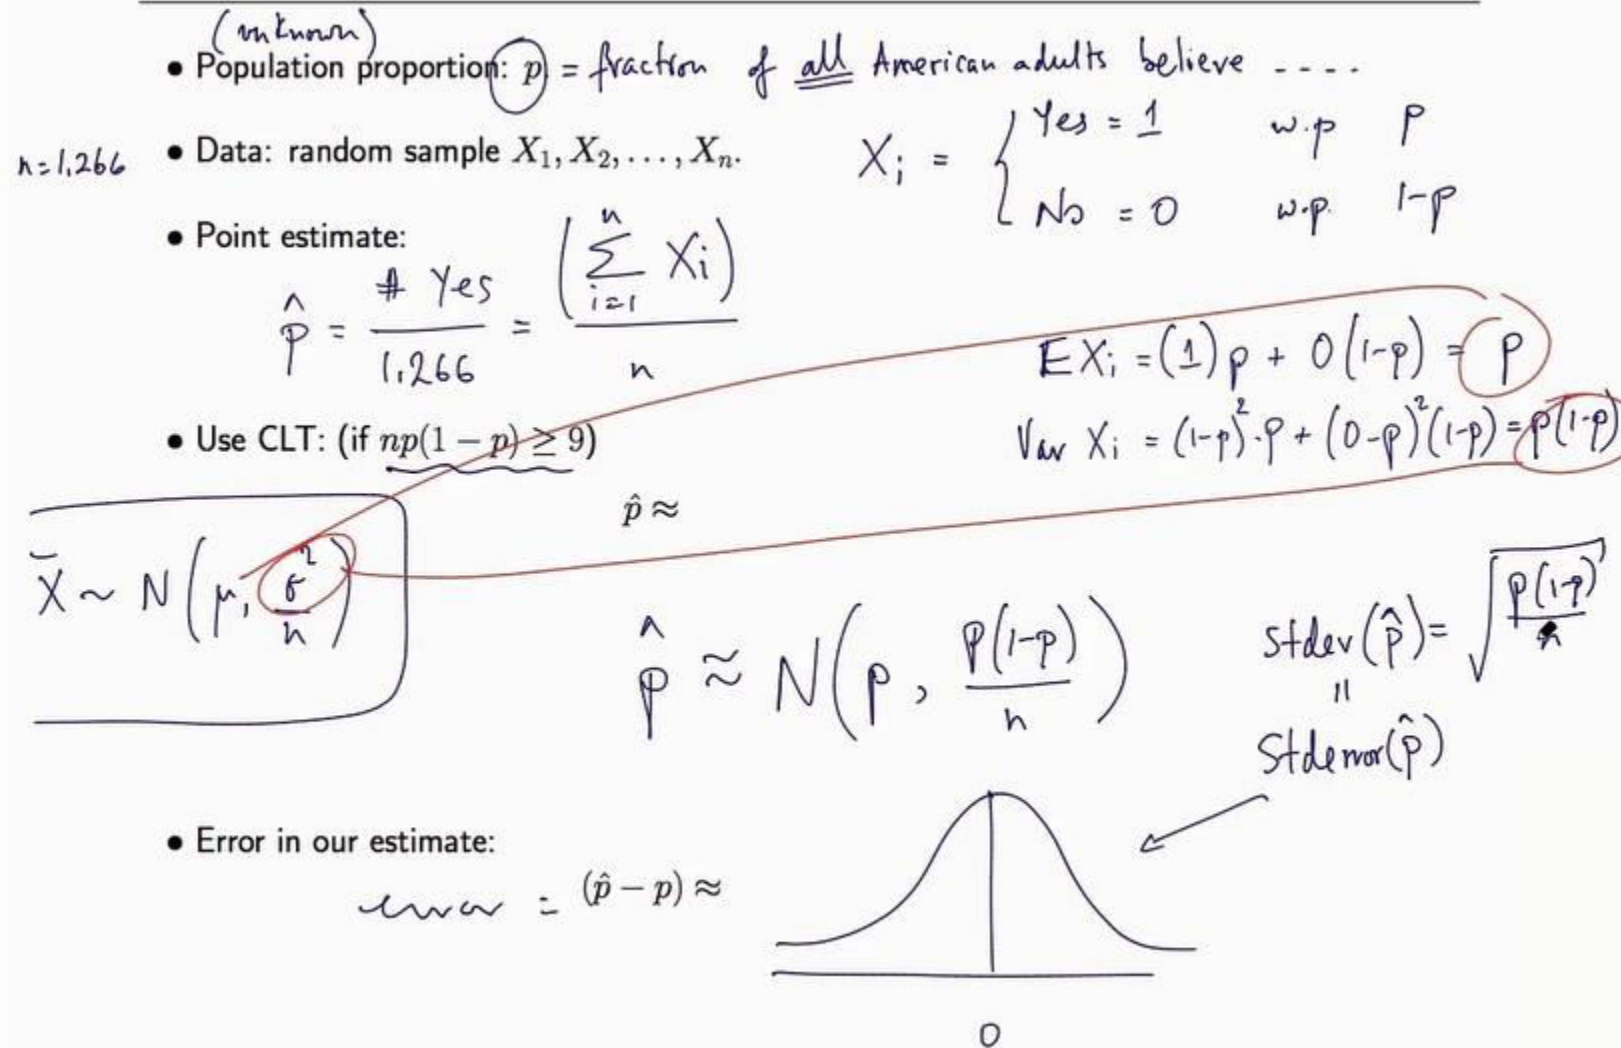 (unknown)
• Population proportion: p = fraction of all American adults believe ....
n=1,266 • Data: random sample X₁, X₂, ..., Xₙ.
Xᵢ = { Yes = 1 w.p p
No = 0 w.p. 1-p
• Point estimate:
p̂ = # Yes / 1,266 = (∑ᵢ₌₁ⁿ Xi) / n
EXᵢ = (1)p + 0(1-p) = p
Var Xᵢ = (1-p)²·p + (0-p)²(1-p) = p(1-p)
• Use CLT: (if np(1 − p) ≥ 9)
p̂ ≈
X̄ ~ N(μ, σ²/n)
p̂ ≈ N(p, p(1-p)/n)
stdev(p̂) = √(p(1-p)/n)
=
Stderror(p̂)
• Error in our estimate:
error = (p̂ − p) ≈
0